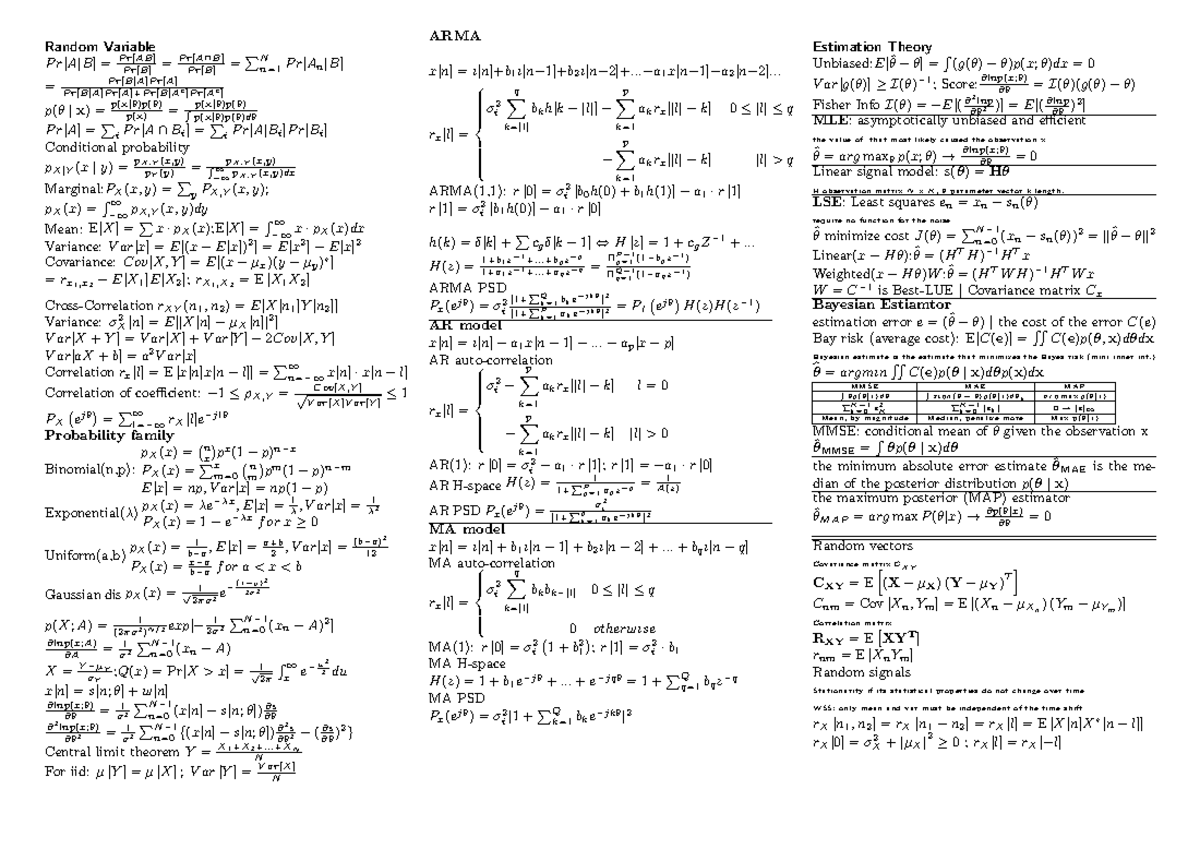 Random Variable
Pr[A|B] = Pr[AB]/Pr[B] = Pr[A∩B]/Pr[B] = ∑_{n=1}^{N} Pr[A_n|B]
= Pr[B|A]Pr[A] / (Pr[B|A]Pr[A]+Pr[B|A^c]Pr[A^c])
p(θ | x) = p(x|θ)p(θ)/p(x) = p(x|θ)p(θ)/∫p(x|θ)p(θ)dθ
Pr[A] = ∑_i Pr[A ∩ B_i] = ∑_i Pr[A|B_i]Pr[B_i]
Conditional probability
p_{X|Y}(x | y) = p_{X,Y}(x,y)/p_Y(y) = p_{X,Y}(x,y)/∫_{-∞}^{∞} p_{X,Y}(x,y)dx
Marginal: P_X(x, y) = ∑_y P_{X,Y}(x, y);
p_X(x) = ∫_{-∞}^{∞} p_{X,Y}(x, y)dy
Mean: E[X] = ∑ x · p_X(x); E[X] = ∫_{-∞}^{∞} x · p_X(x)dx
Variance: Var[x] = E[(x − E[x])²] = E[x²] − E[x]²
Covariance: Cov[X, Y] = E[(x − μ_x)(y − μ_y)*]
= r_{x1,x2} − E[X1]E[X2]; r_{X1,X2} = E [X1X2]
Cross-Correlation r_{XY}(n1, n2) = E[X[n1]Y[n2]]
Variance: σ_X²[n] = E[|X[n] − μ_X[n]|²]
Var[X + Y] = Var[X] + Var[Y] − 2Cov[X, Y]
Var[aX + b] = a²Var[x]
Correlation r_x[l] = E [x[n]x[n − l]] = ∑_{n=−∞}^{∞} x[n] · x[n − l]
Correlation of coefficient: −1 ≤ ρ_{X,Y} = Cov[X,Y]/√(Var[X]Var[Y]) ≤ 1
P_X (e^{jθ}) = ∑_{l=−∞}^{∞} r_X[l]e^{−jlθ}
Probability family
p_X(x) = (n x) p^x(1 − p)^{n−x}
Binomial(n,p): P_X(x) = ∑_{m=0}^{x} (n m) p^m(1 − p)^{n−m}
E[x] = np, Var[x] = np(1 − p)
Exponential(λ) p_X(x) = λe^{−λx}, E[x] = 1/λ, Var[x] = 1/λ²
P_X(x) = 1 − e^{−λx} for x ≥ 0
Uniform(a,b) p_X(x) = 1/(b−a), E[x] = (a+b)/2, Var[x] = (b−a)²/12
P_X(x) = (x−a)/(b−a) for a < x < b
Gaussian dis p_X(x) = 1/√(2πσ²) e^{−(x−μ)²/2σ²}
p(X; A) = 1/(2πσ²)^{N/2} exp[−1/2σ² ∑_{n=0}^{N−1}(x_n − A)²]
∂lnp(x;A)/∂A = 1/σ² ∑_{n=0}^{N−1}(x_n − A)
X = (Y−μ_Y)/σ_Y; Q(x) = Pr[X > x] = 1/√2π ∫_x^∞ e^{−u²/2} du
x[n] = s[n; θ] + w[n]
∂lnp(x;θ)/∂θ = 1/σ² ∑_{n=0}^{N−1}(x[n] − s[n; θ])∂s/∂θ
∂²lnp(x;θ)/∂θ² = 1/σ² ∑_{n=0}^{N−1}{(x[n] − s[n; θ])∂²s/∂θ² − (∂s/∂θ)²}
Central limit theorem Y = (X1+X2+...+X_N)/N
For iid: μ [Y] = μ [X] ; Var [Y] = Var[X]/N
ARMA
x[n] = i[n]+b1i[n−1]+b2i[n−2]+...−a1x[n−1]−a2[n−2]...
r_x[l] = { σ_i² ∑_{k=|l|}^{q} b_k h[k − |l|] − ∑_{k=1}^{p} a_k r_x[|l| − k] 0 ≤ |l| ≤ q
− ∑_{k=1}^{p} a_k r_x[|l| − k] |l| > q
ARMA(1,1): r [0] = σ_i² [b0h(0) + b1h(1)] − a1 · r [1]
r [1] = σ_i² [b1h(0)] − a1 · r [0]
h(k) = δ[k] + ∑ c_q δ[k − 1] ⇔ H [z] = 1 + c_q Z^{−1} + ...
H(z) = (1+b1z^{−1}+...+b_q z^{−q})/(1+a1z^{−1}+...+a_q z^{−q}) = ∏_{q=1}^{P−1}(1−b_q z^{−q})/∏_{q=1}^{Q−1}(1−a_q z^{−q})
ARMA PSD
P_x(e^{jθ}) = σ_i² |1+∑_{k=1}^{Q} b_k e^{−jkθ}|²/|1+∑_{k=1}^{P} a_k e^{−jkθ}|² = P_i (e^{jθ}) H(z)H(z^{−1})
AR model
x[n] = i[n] − a1x[n − 1] − ... − a_p[x − p]
AR auto-correlation
r_x[l] = { σ_i² − ∑_{k=1}^{p} a_k r_x[|l| − k] l = 0
− ∑_{k=1}^{p} a_k r_x[|l| − k] |l| > 0
AR(1): r [0] = σ_i² − a1 · r[1]; r[1] = −a1 · r[0]
AR H-space H(z) = 1/(1+∑_{q=1}^{P} a_q z^{−q}) = 1/A(z)
AR PSD P_x(e^{jθ}) = σ_i²/|1+∑_{k=1}^{P} a_k e^{−jkθ}|²
MA model
x[n] = i[n] + b1i[n − 1] + b2i[n − 2] + ... + b_q i[n − q]
MA auto-correlation
r_x[l] = { σ_i² ∑_{k=|l|}^{q} b_k b_{k−|l|} 0 ≤ |l| ≤ q
0 otherwise
MA(1): r[0] = σ_i² (1 + b1²); r[1] = σ_i² · b1
MA H-space
H(z) = 1 + b1e^{−jθ} + ... + e^{−jqθ} = 1 + ∑_{q=1}^{Q} b_q z^{−q}
MA PSD
P_x(e^{jθ}) = σ_i²|1 + ∑_{k=1}^{Q} b_k e^{−jkθ}|²
Estimation Theory
Unbiased: E[θ̂ − θ] = ∫(g(θ) − θ)p(x; θ)dx = 0
Var[g(θ)] ≥ I(θ)^{−1}; Score: ∂lnp(x;θ)/∂θ = I(θ)(g(θ) − θ)
Fisher Info I(θ) = −E[(∂²lnp/∂θ²)] = E[(∂lnp/∂θ)²]
MLE: asymptotically unbiased and efficient
the value of that most likely caused the observation x
θ̂ = arg max_θ p(x; θ) → ∂lnp(x;θ)/∂θ = 0
Linear signal model: s(θ) = Hθ
H observation matrix N x K, θ parameter vector k length.
LSE: Least squares e_n = x_n − s_n(θ)
require no function for the noise
θ̂ minimize cost J(θ) = ∑_{n=0}^{N−1}(x_n − s_n(θ))² = ||θ̂ − θ||²
Linear(x − Hθ): θ̂ = (H^T H)^{−1}H^T x
Weighted(x − Hθ)W: θ̂ = (H^T WH)^{−1}H^T Wx
W = C^{−1} is Best-LUE | Covariance matrix C_x
Bayesian Estiamtor
estimation error e = (θ̂ − θ) | the cost of the error C(e)
Bay risk (average cost): E[C(e)] = ∫∫ C(e)p(θ, x)dθdx
Bayesian estimate is the estimate that minimizes the Bayes risk (mini inner int.)
θ̂ = argmin ∫∫ C(e)p(θ | x)dθp(x)dx
MMSE MAE MAP
∫ θp(θ|x)dθ arg max p(θ|x)
∑_{k=0}^{K−1} e_k² ∑_{k=0}^{K−1} |e_k|
Mean, by magnitude Median, penalize more Max p(θ|x)
MMSE: conditional mean of θ given the observation x
θ̂_MMSE = ∫ θp(θ | x)dθ
the minimum absolute error estimate θ̂_MAE is the me-
dian of the posterior distribution p(θ | x)
the maximum posterior (MAP) estimator
θ̂_MAP = arg max P(θ|x) → ∂p(θ|x)/∂θ = 0
Random vectors
Covariance matrix C_XY
C_XY = E [(X − μ_X) (Y − μ_Y)^T]
C_nm = Cov [X_n, Y_m] = E [(X_n − μ_{X_n}) (Y_m − μ_{Y_m})]
Correlation matrix
R_XY = E [XY^T]
r_nm = E [X_nY_m]
Random signals
Stationarity if its statistical properties do not change over time
WSS: only mean and var must be independent of the time shift
r_X [n1, n2] = r_X [n1 − n2] = r_X[l] = E [X[n]X*[n − l]]
r_X[0] = σ_X² + |μ_X|² ≥ 0 ; r_X[l] = r_X[−l]